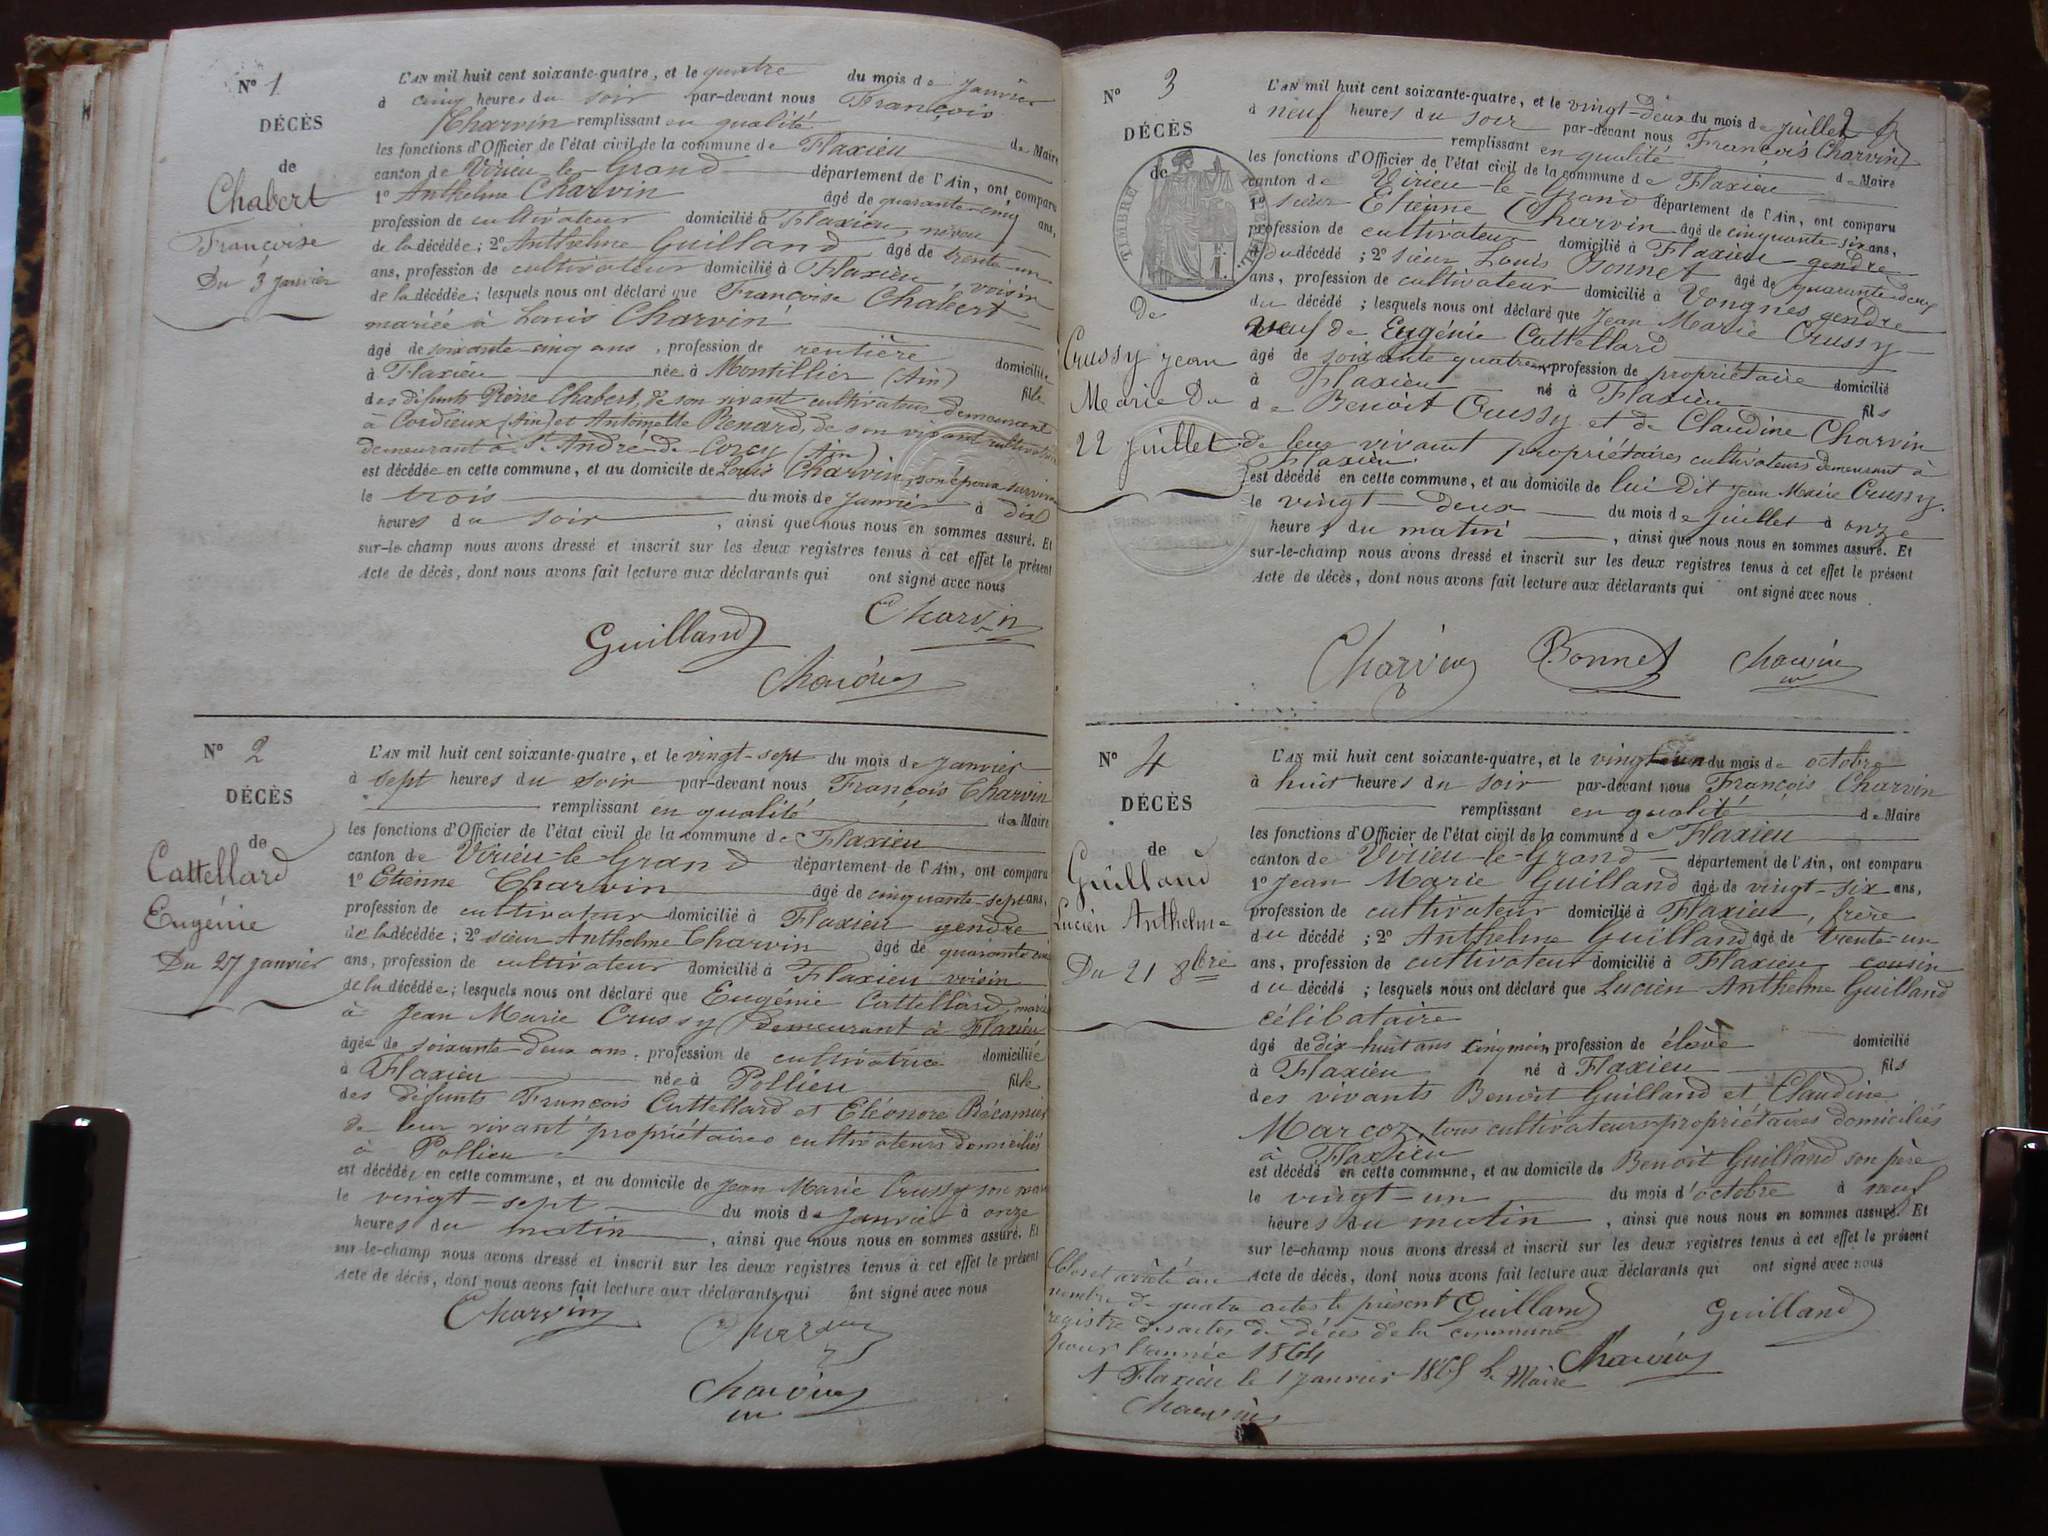 N° 1
DÉCÈS
de
Chabert
Françoise
Du 3 janvier
L'AN mil huit cent soixante-quatre, et le quatre du mois de janvier
à cinq heures du soir par-devant nous François
Charvin remplissant en qualité de Maire
les fonctions d'Officier de l'état civil de la commune de Flaxieu
canton de Virieu-le-Grand département de l'Ain, ont comparu
1° Anthelme Charvin âgé de quarante-cinq ans,
profession de cultivateur domicilié à Flaxieu, neveu
de la décédée; 2° Anthelme Guilland âgé de trente-un
ans, profession de cultivateur domicilié à Flaxieu, voisin
de la décédée; lesquels nous ont déclaré que Françoise Chabert
mariée à Louis Charvin
âgé de soixante-cinq ans, profession de rentière domiciliée
à Flaxieu née à Montillier (Ain) fille
des défunts Pierre Chabert, de son vivant cultivateur demeurant
à Cordieux (Ain) et Antoinette Renard, de son vivant cultivatrice
demeurant à St André-de-Corcy (Ain)
est décédée en cette commune, et au domicile de Louis Charvin, son époux survivant
le trois du mois de janvier à dix
heures du soir, ainsi que nous nous en sommes assuré. Et
sur-le-champ nous avons dressé et inscrit sur les deux registres tenus à cet effet le présent
Acte de décès, dont nous avons fait lecture aux déclarants qui ont signé avec nous
Charvin
Guilland
Charvin
N° 2
DÉCÈS
de
Cattellard
Eugénie
Du 27 janvier
L'AN mil huit cent soixante-quatre, et le vingt-sept du mois de janvier
à sept heures du soir par-devant nous François Charvin
remplissant en qualité de Maire
les fonctions d'Officier de l'état civil de la commune de Flaxieu
canton de Virieu-le-Grand département de l'Ain, ont comparu
1° Etienne Charvin âgé de cinquante-sept ans,
profession de cultivateur domicilié à Flaxieu gendre
de la décédée; 2° sieur Anthelme Charvin âgé de quarante cinq
ans, profession de cultivateur domicilié à Flaxieu voisin
de la décédée; lesquels nous ont déclaré que Eugénie Cattellard, mariée
à Jean Marie Crussy demeurant à Flaxieu
âgée de soixante-deux ans, profession de cultivatrice domiciliée
à Flaxieu née à Pollieu fille
des défunts François Cattellard et Eléonore Bécamier
de leur vivant propriétaires cultivateurs domiciliés
à Pollieu
est décédée, en cette commune, et au domicile de Jean Marie Crussy son mari
le vingt-sept du mois de janvier à onze
heures du matin, ainsi que nous nous en sommes assuré. Et
sur-le-champ nous avons dressé et inscrit sur les deux registres tenus à cet effet le présent
Acte de décès, dont nous avons fait lecture aux déclarants qui ont signé avec nous
Charvin
Charvin
Charvin
N° 3
DÉCÈS
de
TIMBRE
de
Crussy Jean
Marie Du
22 juillet
L'AN mil huit cent soixante-quatre, et le vingt-deux du mois de juillet
à neuf heures du soir par-devant nous François Charvin
remplissant en qualité de Maire
les fonctions d'Officier de l'état civil de la commune de Flaxieu
canton de Virieu-le-Grand département de l'Ain, ont comparu
1° sieur Etienne Charvin âgé de cinquante-six ans,
profession de cultivateur domicilié à Flaxieu gendre
du décédé; 2° sieur Louis Bonnet âgé de quarante-deux
ans, profession de cultivateur domicilié à Vongnes gendre
du décédé; lesquels nous ont déclaré que Jean Marie Crussy
veuf de Eugénie Cattellard
âgé de soixante quatre ans, profession de propriétaire domicilié
à Flaxieu né à Flaxieu fils
de Benoit Crussy et de Claudine Charvin
de leur vivant propriétaires cultivateurs demeurant à
Flaxieu
est décédé en cette commune, et au domicile de lui dit Jean Marie Crussy.
le vingt-deux du mois de juillet à onze
heures du matin, ainsi que nous nous en sommes assuré. Et
sur-le-champ nous avons dressé et inscrit sur les deux registres tenus à cet effet le présent
Acte de décès, dont nous avons fait lecture aux déclarants qui ont signé avec nous
Charvin Bonnet Charvin
N° 4
DÉCÈS
de
Guilland
Lucien Anthelme
Du 21 8bre
L'AN mil huit cent soixante-quatre, et le vingt-un du mois de octobre
à huit heures du soir par-devant nous François Charvin
remplissant en qualité de Maire
les fonctions d'Officier de l'état civil de la commune de Flaxieu
canton de Virieu-le-Grand département de l'Ain, ont comparu
1° Jean Marie Guilland âgé de vingt-six ans,
profession de cultivateur domicilié à Flaxieu, frère
du décédé; 2° Anthelme Guilland âgé de trente-un
ans, profession de cultivateur domicilié à Flaxieu cousin
du décédé; lesquels nous ont déclaré que Lucien Anthelme Guilland
célibataire
âgé de dix-huit ans cinq mois, profession de élève domicilié
à Flaxieu né à Flaxieu fils
des vivants Benoit Guilland et Claudine
Marcoz, tous cultivateurs propriétaires domiciliés
à Flaxieu
est décédé en cette commune, et au domicile de Benoit Guilland son père
le vingt-un du mois d'octobre à neuf
heures du matin, ainsi que nous nous en sommes assuré. Et
sur le-champ nous avons dressé et inscrit sur les deux registres tenus à cet effet le présent
Acte de décès, dont nous avons fait lecture aux déclarants qui ont signé avec nous
Guilland Guilland
Charvin
Clos et arrêté au
nombre de quatre actes le présent
registre des actes de décès de la commune
pour l'année 1864
A Flaxieu le 1 janvier 1865 Le Maire
Charvin